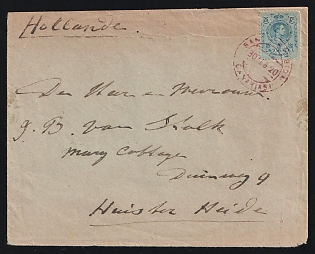 Hollande.
Den Heer en Mevrouw
J. B. van Stolk
Mary Cottage
Duinweg 9
Huis ter Heide